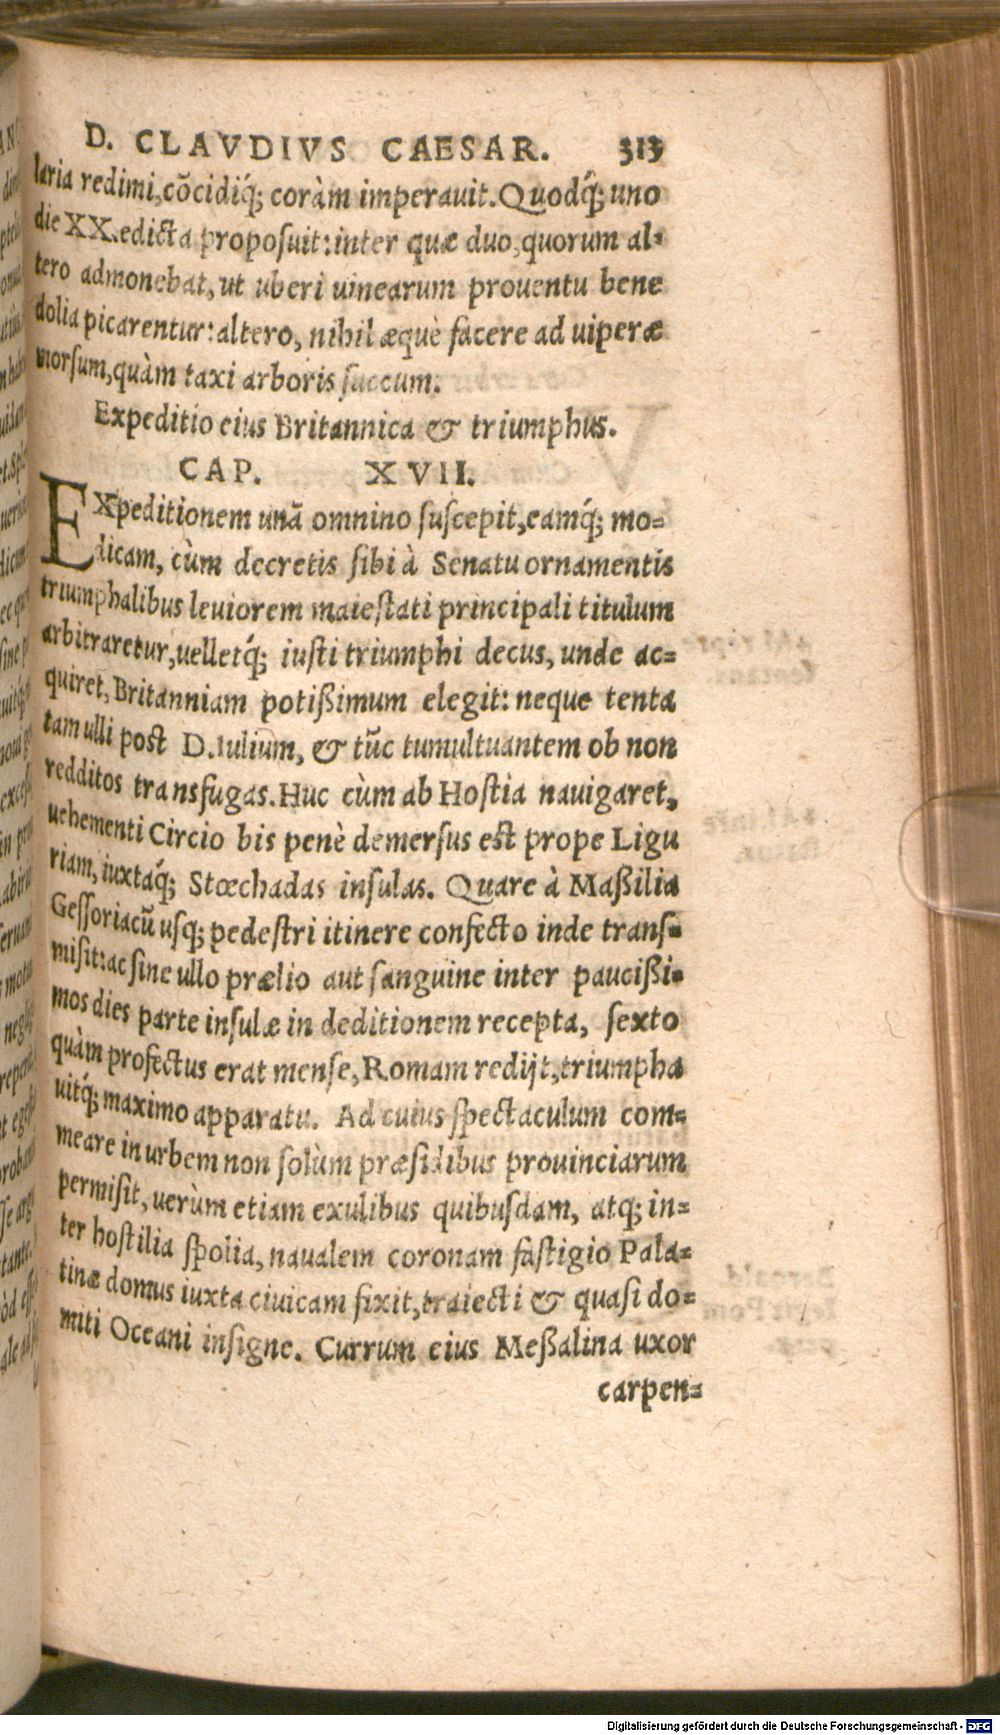 D. CLAVDIVS CAESAR. 313
laria redimi, cõcidíq́; coràm imperauit. Quodq́; uno
die XX. edicta proposuit: inter quæ duo, quorum al=
tero admonebat, ut uberi uinearum prouentu bene
dolia picarentur: altero, nihil æquè facere ad uiperæ
morsum, quàm taxi arboris succum.
Expeditio eius Britannica & triumphus.
CAP. XVII.
EXpeditionem unã omnino suscepit, eamq́; mo=
dicam, cùm decretis sibi à Senatu ornamentis
triumphalibus leuiorem maiestati principali titulum
arbitraretur, uelletq́; iusti triumphi decus, unde ac=
quiret, Britanniam potißimum elegit: neque tenta
tam ulli post D. Iulium, & tũc tumultuantem ob non
redditos transfugas. Huc cùm ab Hostia nauigaret,
uehementi Circio bis penè demersus est prope Ligu
riam, iuxtaq́; Stœchadas insulas. Quare à Maßilia
Gessoriacũ usq; pedestri itinere confecto inde trans=
misit: ac sine ullo prælio aut sanguine inter paucißi=
mos dies parte insulæ in deditionem recepta, sexto
quàm profectus erat mense, Romam redijt, triumpha
uitq́; maximo apparatu. Ad cuius spectaculum com=
meare in urbem non solùm præsidibus prouinciarum
permisit, uerùm etiam exulibus quibusdam, atq; in=
ter hostilia spolia, naualem coronam fastigio Pala=
tinæ domus iuxta ciuicam fixit, traiecti & quasi do=
miti Oceani insigne. Currum eius Meßalina uxor
carpen=
Digitalisierung gefördert durch die Deutsche Forschungsgemeinschaft - DFG